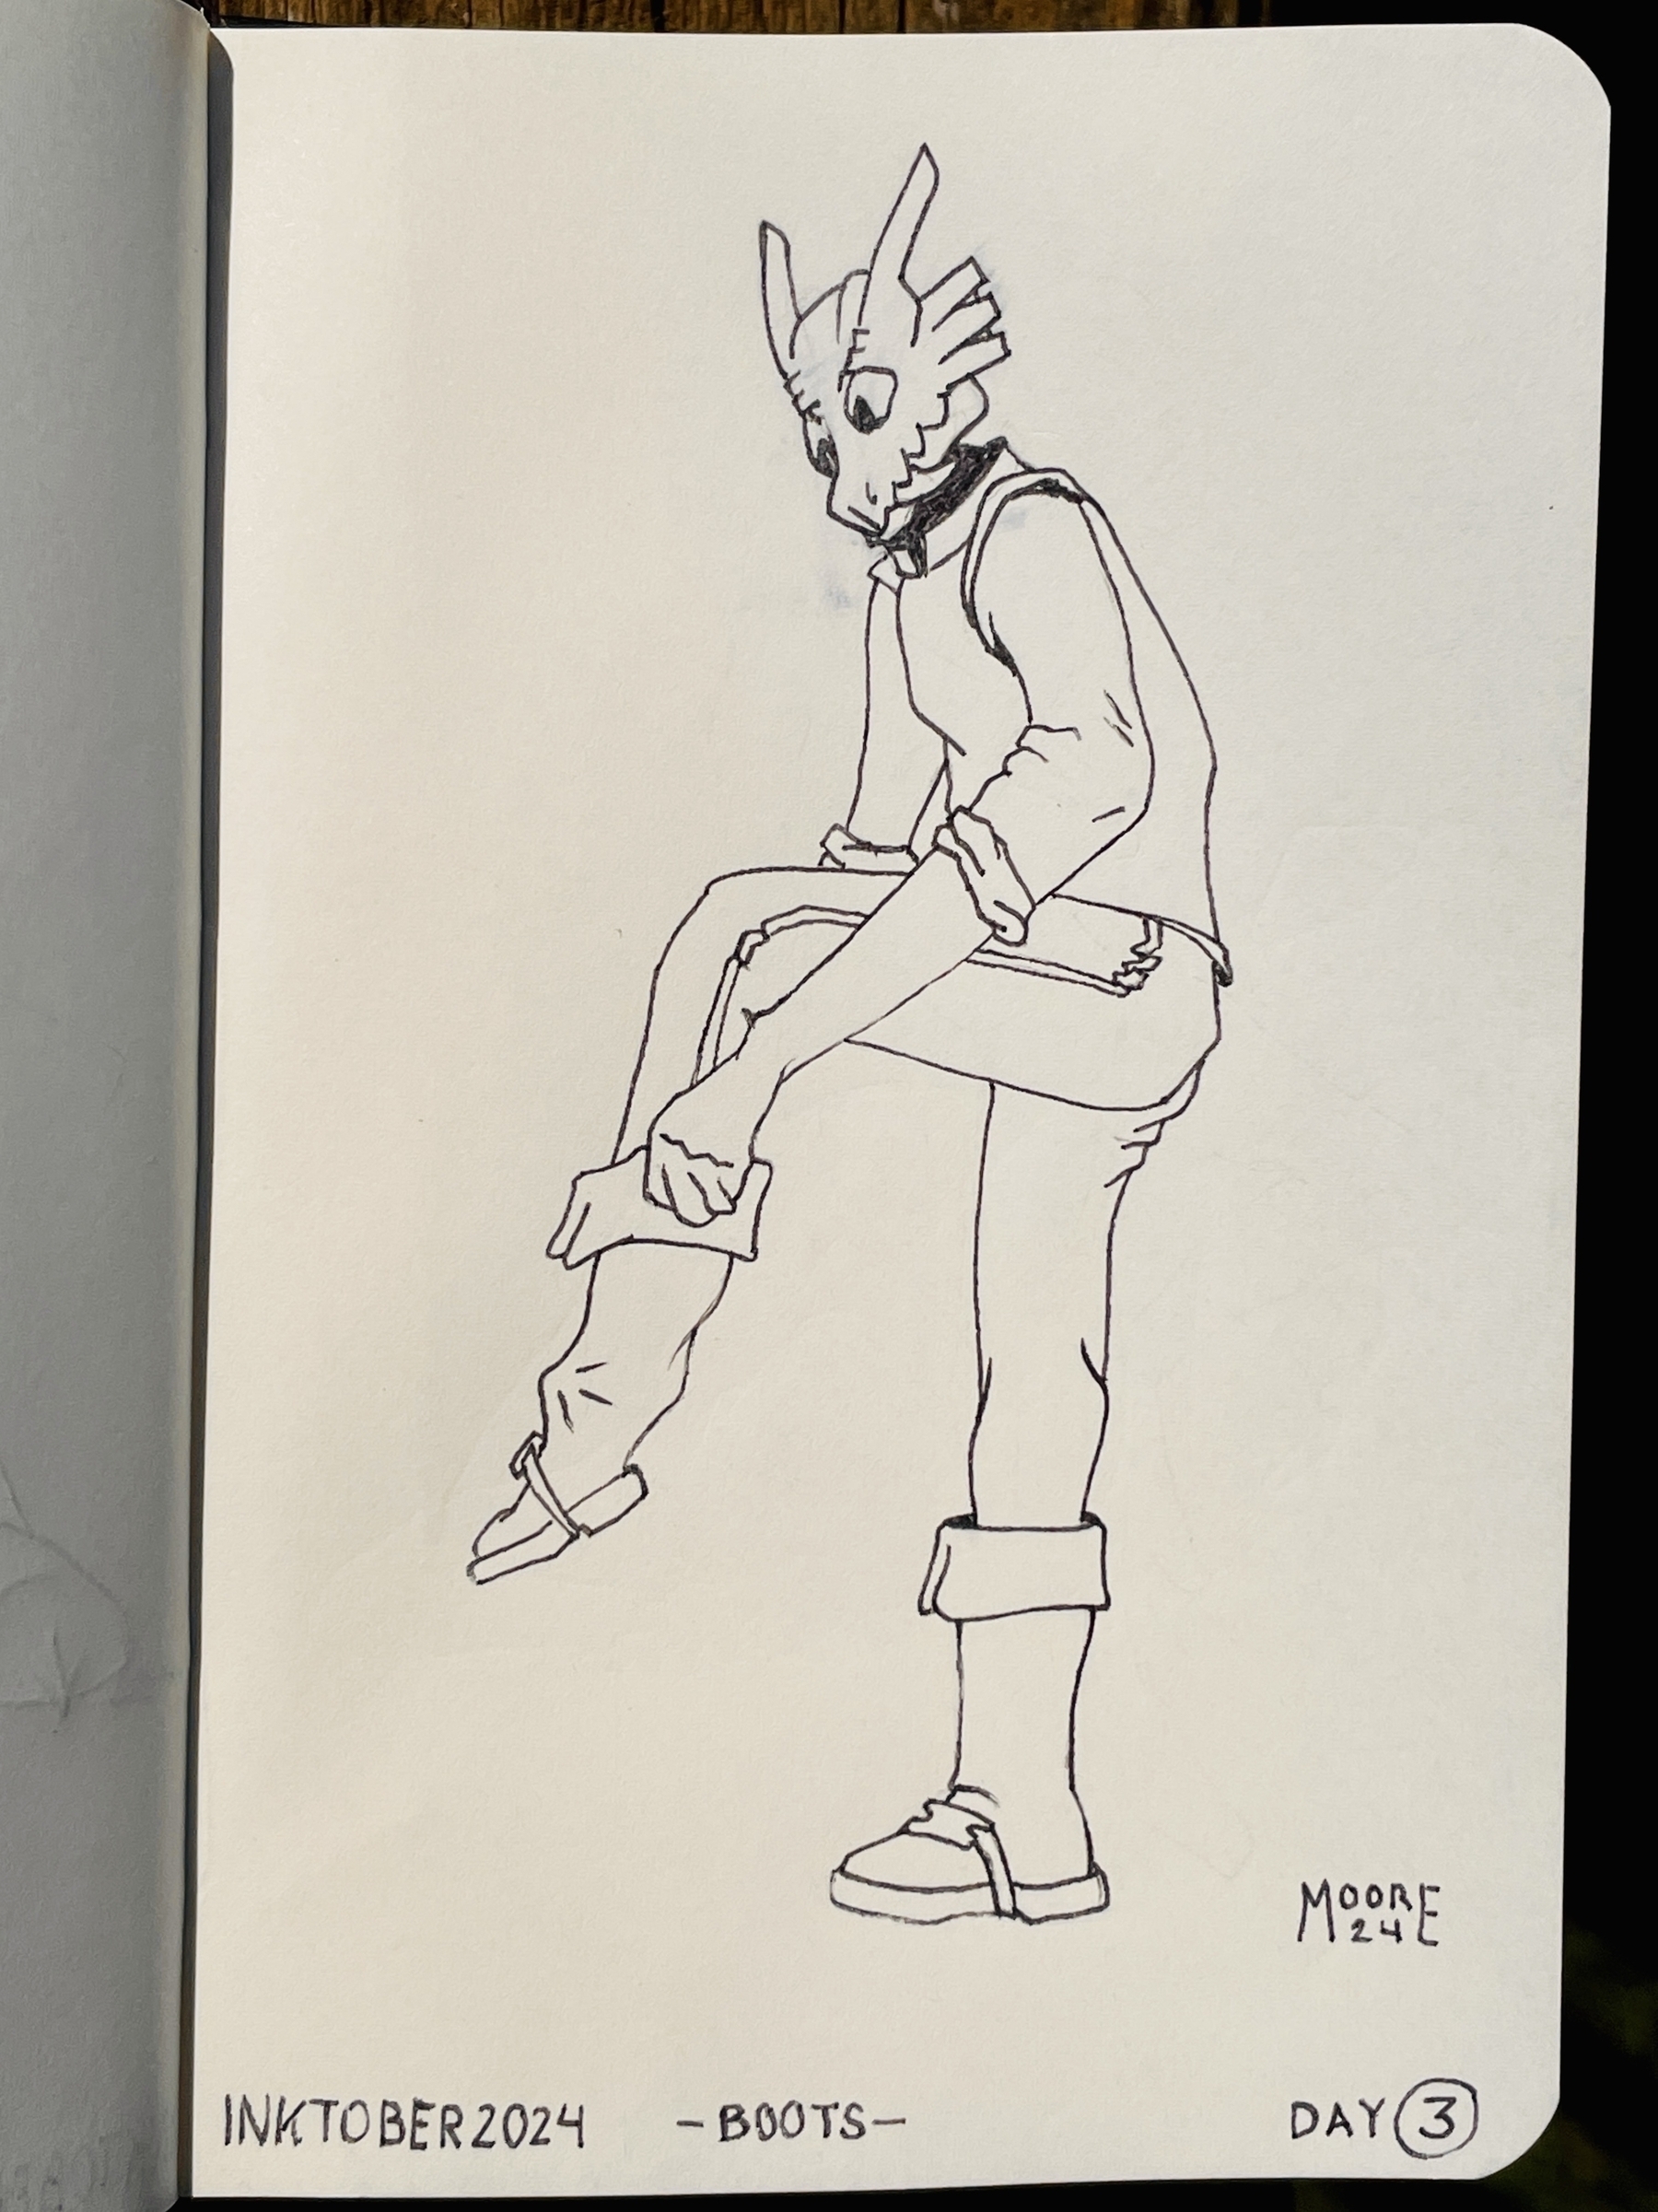 MOORE
24
INKTOBER2024 -BOOTS- DAY 3